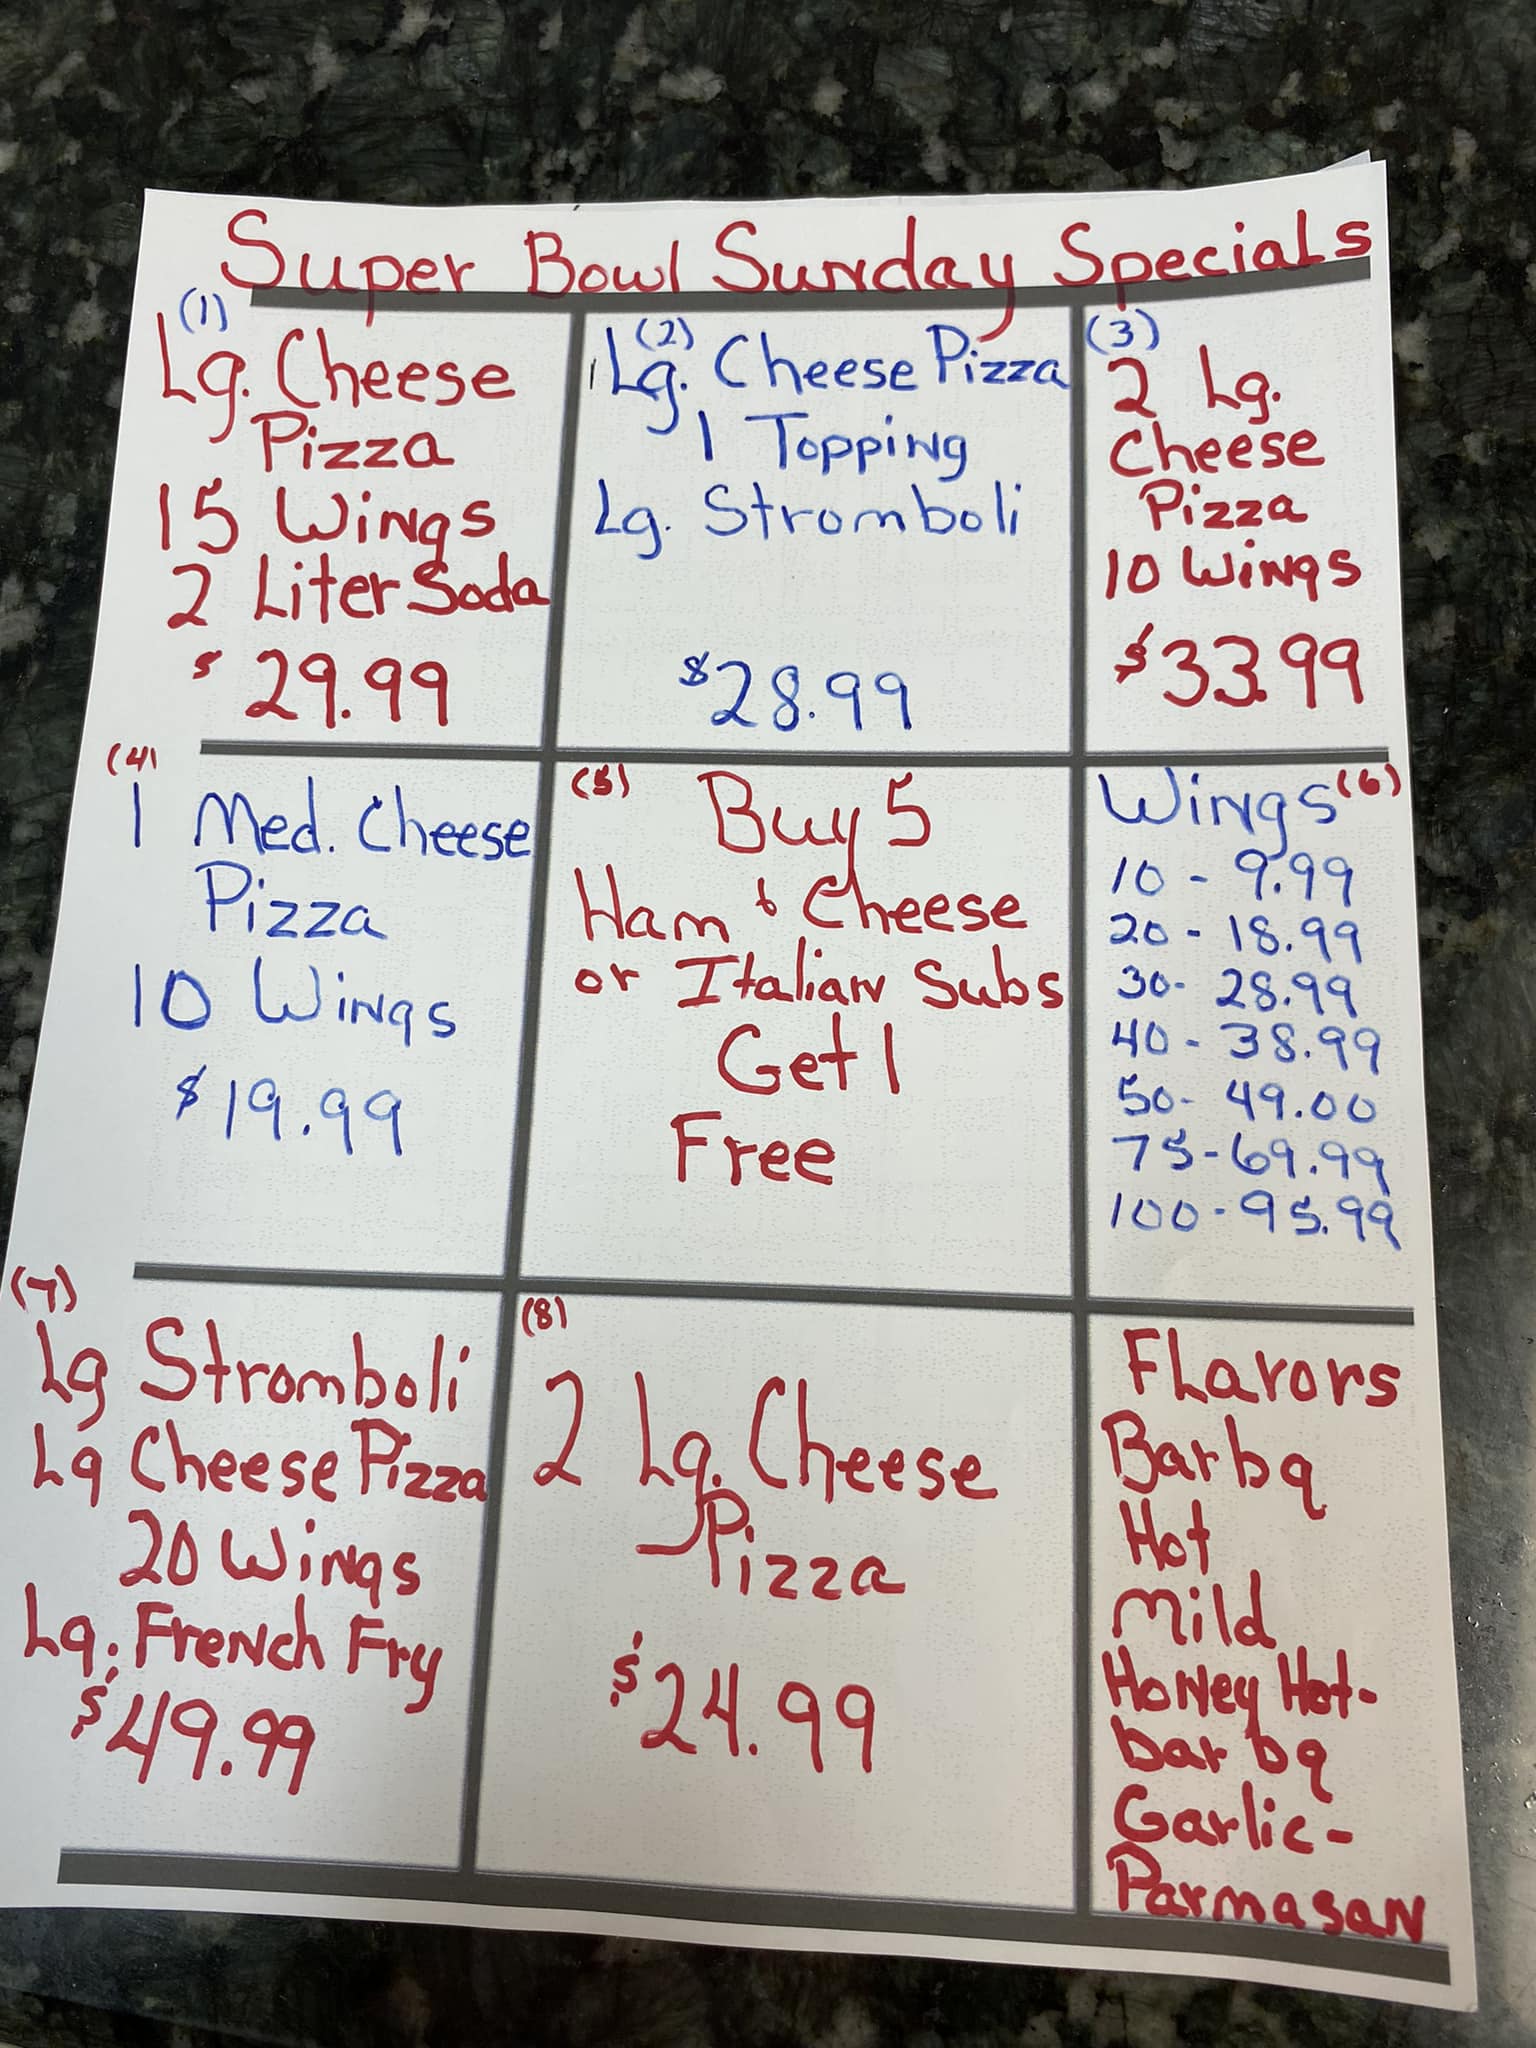 Super Bowl Sunday Specials
(1)
Lg. Cheese
Pizza
15 Wings
2 Liter Soda
$29.99
(2)
1 Lg. Cheese Pizza
1 Topping
Lg. Stromboli
$28.99
(3)
2 Lg.
Cheese
Pizza
10 Wings
$33.99
(4)
1 Med. Cheese
Pizza
10 Wings
$19.99
(5)
Buy 5
Ham & Cheese
or Italian Subs
Get 1
Free
Wings (6)
10 - 9.99
20 - 18.99
30 - 28.99
40 - 38.99
50 - 49.00
75 - 69.99
100 - 95.99
(7)
Lg Stromboli
Lg Cheese Pizza
20 Wings
Lg. French Fry
$49.99
(8)
2 Lg. Cheese
Pizza
$24.99
Flavors
Bar bq
Hot
Mild
Honey Hot-
bar bq
Garlic-
Parmasan